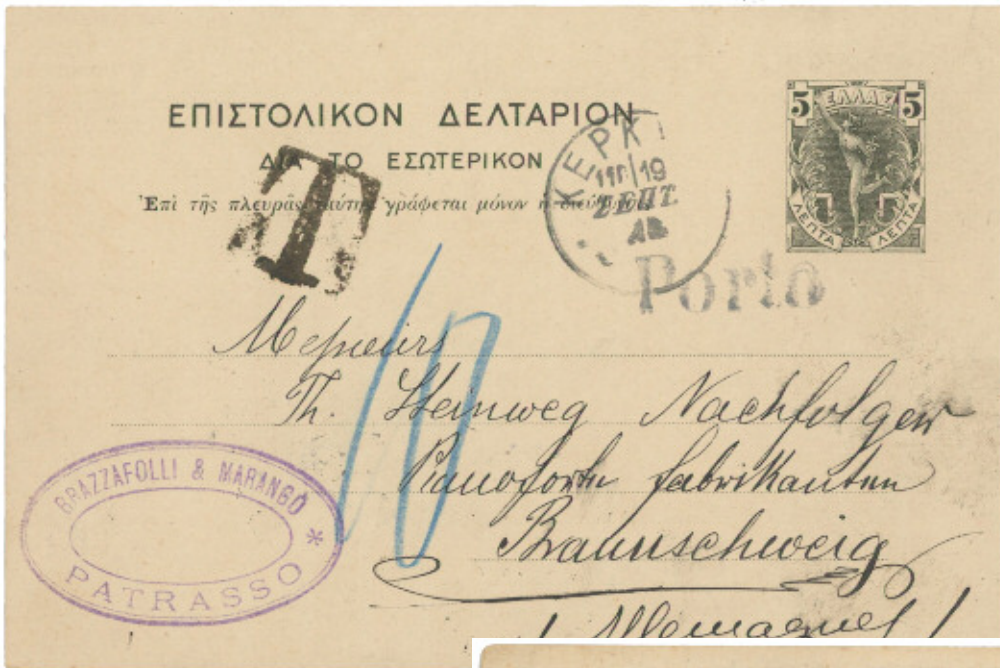 5 ΕΛΛΑΣ 5
ΛΕΠΤΑ ΛΕΠΤΑ
ΕΠΙΣΤΟΛΙΚΟΝ ΔΕΛΤΑΡΙΟΝ
ΔΙΑ ΤΟ ΕΣΩΤΕΡΙΚΟΝ
Ἐπὶ τῆς πλευρᾶς ταύτης γράφεται μόνον ἡ διεύθυνσις
T
ΚΕΡΚ
19
ΣΕΠΤ
Porto
10
Messieurs
Th. Steinweg Nachfolger
Pianoforte fabrikanten
Braunschweig
Allemagne
BRAZZAFOLLI & MARANGÒ
* PATRASSO